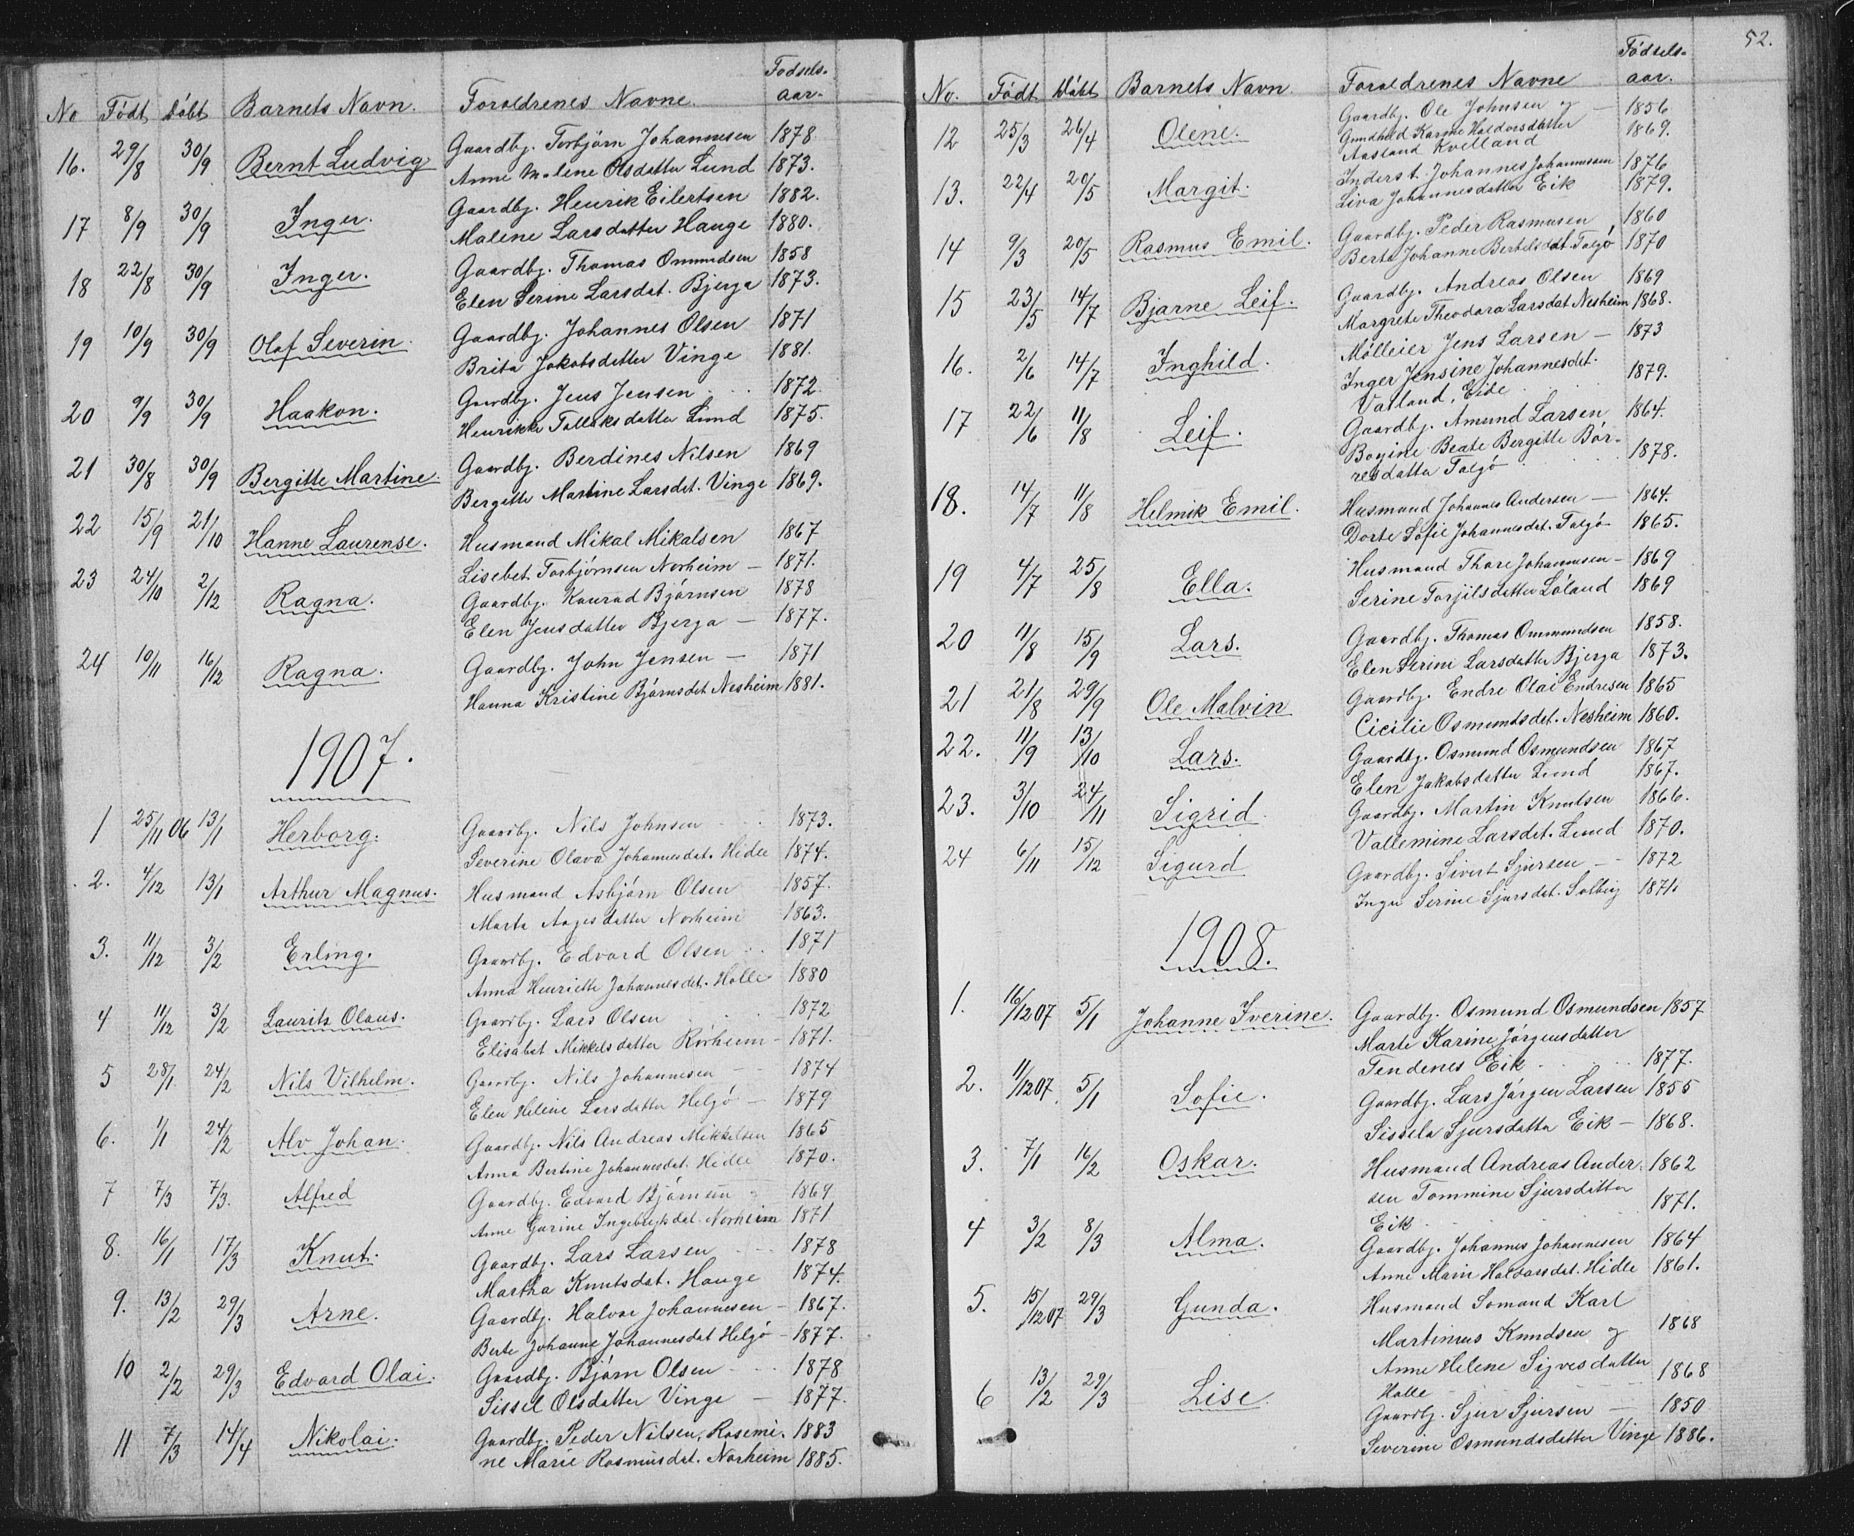 No Født Døbt Barnets Navn. Foreldrenes Navne. Fødsels-
aar.
16. 29/8 30/9 Bernt Ludvig Gaardbr. Torbjørn Johannesen 1878
Anne Malene Olsdatter Lund 1873.
17 8/9 30/9 Inger. Gaardbr. Henrik Eilertsen 1882.
Malene Larsdatter Hauge 1880.
18 22/8 30/9 Inger. Gaardbr. Thomas Ommundsen 1858
Elen Serine Larsdat. Bjerga 1873.
19 10/9 30/9 Olaf Severin. Gaardbr. Johannes Olsen 1871
Brita Jakobsdatter Vinge 1881.
20 9/9 30/9 Haakon. Gaardbr. Jens Jensen 1872
Henrikke Tollaksdatter Lund 1875.
21 30/8 30/9 Bergitte Martine. Gaardbr. Berdines Nilsen 1869
Bergitte Martine Larsdet. Vinge 1869.
22 15/9 21/10 Hanne Laurense. Husmand Mikal Mikalsen 1867
Lisebet Torbjørnsen Norheim - 1871.
23 24/10 2/12 Ragna. Gaardbr. Konrad Bjørnsen 1878
Elen Jensdatter Bjerga - 1877.
24 10/11 16/12 Ragna. Gaardbr. John Jensen - 1871
Hanna Kristine Bjørnsdet. Nesheim 1881.
1907.
1 25/11 06 13/1 Herborg. Gaardbr. Nils Johnsen 1873.
Severine Olava Johannesdat. Hidle 1874.
2. 4/12 13/1 Arthur Magnus. Husmand Asbjørn Olsen 1857.
Marta Aagesdatter Norheim 1863.
3. 11/12 3/2 Erling. Gaardbr. Edvard Olsen 1871
Anna Henriette Johannesdet. Holle 1880
4 11/12 3/2 Lauritz Olaus. Gaardbr. Lars Olsen 1872
Elisabet Mikkelsdatter Rørheim - 1871.
5 28/1 24/2 Nils Vilhelm. Gaardbr. Nils Johannesen - 1874
Elen Helene Larsdatter Helgø - 1879
6. 1/1 24/2 Alv Johan. Gaardbr. Nils Andreas Mikkelsen 1865
Anna Bertine Johannesdat. Hidle 1870.
7 7/3 7/3. Alfred Gaardbr. Edvard Bjørnsen 1869
Anne Gurine Ingebregtsdat. Norheim 1871
8. 16/1 17/3 Knut. Gaardbr. Lars Larsen 1878
Martha Knutsdat. Hauge 1874.
9. 13/2 29/3 Arne. Gaardbr. Halvor Johannesen - 1867.
Berte Johanne Johannesdat Helgø - 1877.
10 2/2 29/3 Edvard Olai. Gaardbr. Bjørn Olsen 1878
Sissel Olsdatter Vinge - 1877.
11 7/3 14/4 Nikolai. Gaardbr. Peder Nilsen, Rosemi- 1883
ne Marie Rasmusdat. Norheim 1885.
52.
No. Født Døbt Barnets Navn Foreldrenes Navne Fødsels-
aar.
12 25/3 26/4 Olene. Gaardbr. Ole Johnsen og - 1856
Gundhild Karine Haldorsdatter 1869.
Aasland Kvelland
13. 22/4 20/5 Margit. Inderst. Johannes Johannessen 1876
Liva Johannesdatter Eik 1879.
14 9/3 20/5 Rasmus Emil. Gaardbr. Peder Rasmusen 1860
Berta Johanne Bertelsdat. Talgø 1870
15 23/5 14/7 Bjarne Leif. Gaardbr. Andreas Olsen 1869
Margrete Theodora Larsdat Nesheim 1868.
16. 2/6 14/7 Inghild. Mølleier Jens Larsen - 1873
Inger Jensine Johannesdet. 1879.
Vatland, Eide
17 22/6 11/8 Leif. Gaardbr. Amund Larsen 1864.
Beate Bergitte Bør-
resdatter Talgø 1878.
18. 14/7 11/8 Helmik Emil. Husmand Johannes Andersen - 1864.
Dorte Sofie Johannesdat. Talgø 1865.
19 4/7 25/8 Ella. Husmand Thore Johannesen - 1869
Serine Torjilsdatter Løland 1869
20 11/8 15/9 Lars. Gaardbr. Thomas Ommundsen 1858.
Elen Serine Larsdatter Bjerga 1873.
21 21/8 29/9 Ole Malvin Gaardbr. Endre Olai Endresen 1865
Cicilie Osmundsdet. Nesheim 1860.
22. 11/9 13/10 Lars. Gaardbr. Osmund Osmundsen 1867
Elen Jakobsdatter Lund 1867.
23. 3/10 24/11 Sigrid. Gaardbr. Martin Knutsen 1866.
Vallemine Larsdet. Lund 1870.
24 6/11 15/12 Sigurd Gaardbr. Sivert Sjursen - 1872
Inger Serine Sjursdat. Solberg 1871.
1908.
1. 16/12 07 5/1 Johanne Iverine. Gaardbr. Osmund Osmundsen 1857
Marte Karine Jørgensdatter
Tendenes Eik 1877.
2. 11/12 07 5/1 Sofie. Gaardbr. Lars Jørgen Larsen 1855
Sissela Sjursdatter Eik - 1868.
3. 7/1 16/2 Oskar. Husmand Andreas Ander- 1862
sen Tommine Sjursdatter 1871.
Eik
4 3/2 8/3 Alma. Gaardbr. Johannes Johannesen 1864
Anne Marie Halvorsdet. Hidle 1861.
5. 15/12 07 29/3 Gunda. Husmand Sømand Karl
Martinus Knudsen og 1868
Anne Helene Sigvesdatter 1868
Halle
6 13/2 29/3 Lise. Gaardbr. Sjur Sjursen - 1850
Severine Osmundsdatter Vinge 1886.